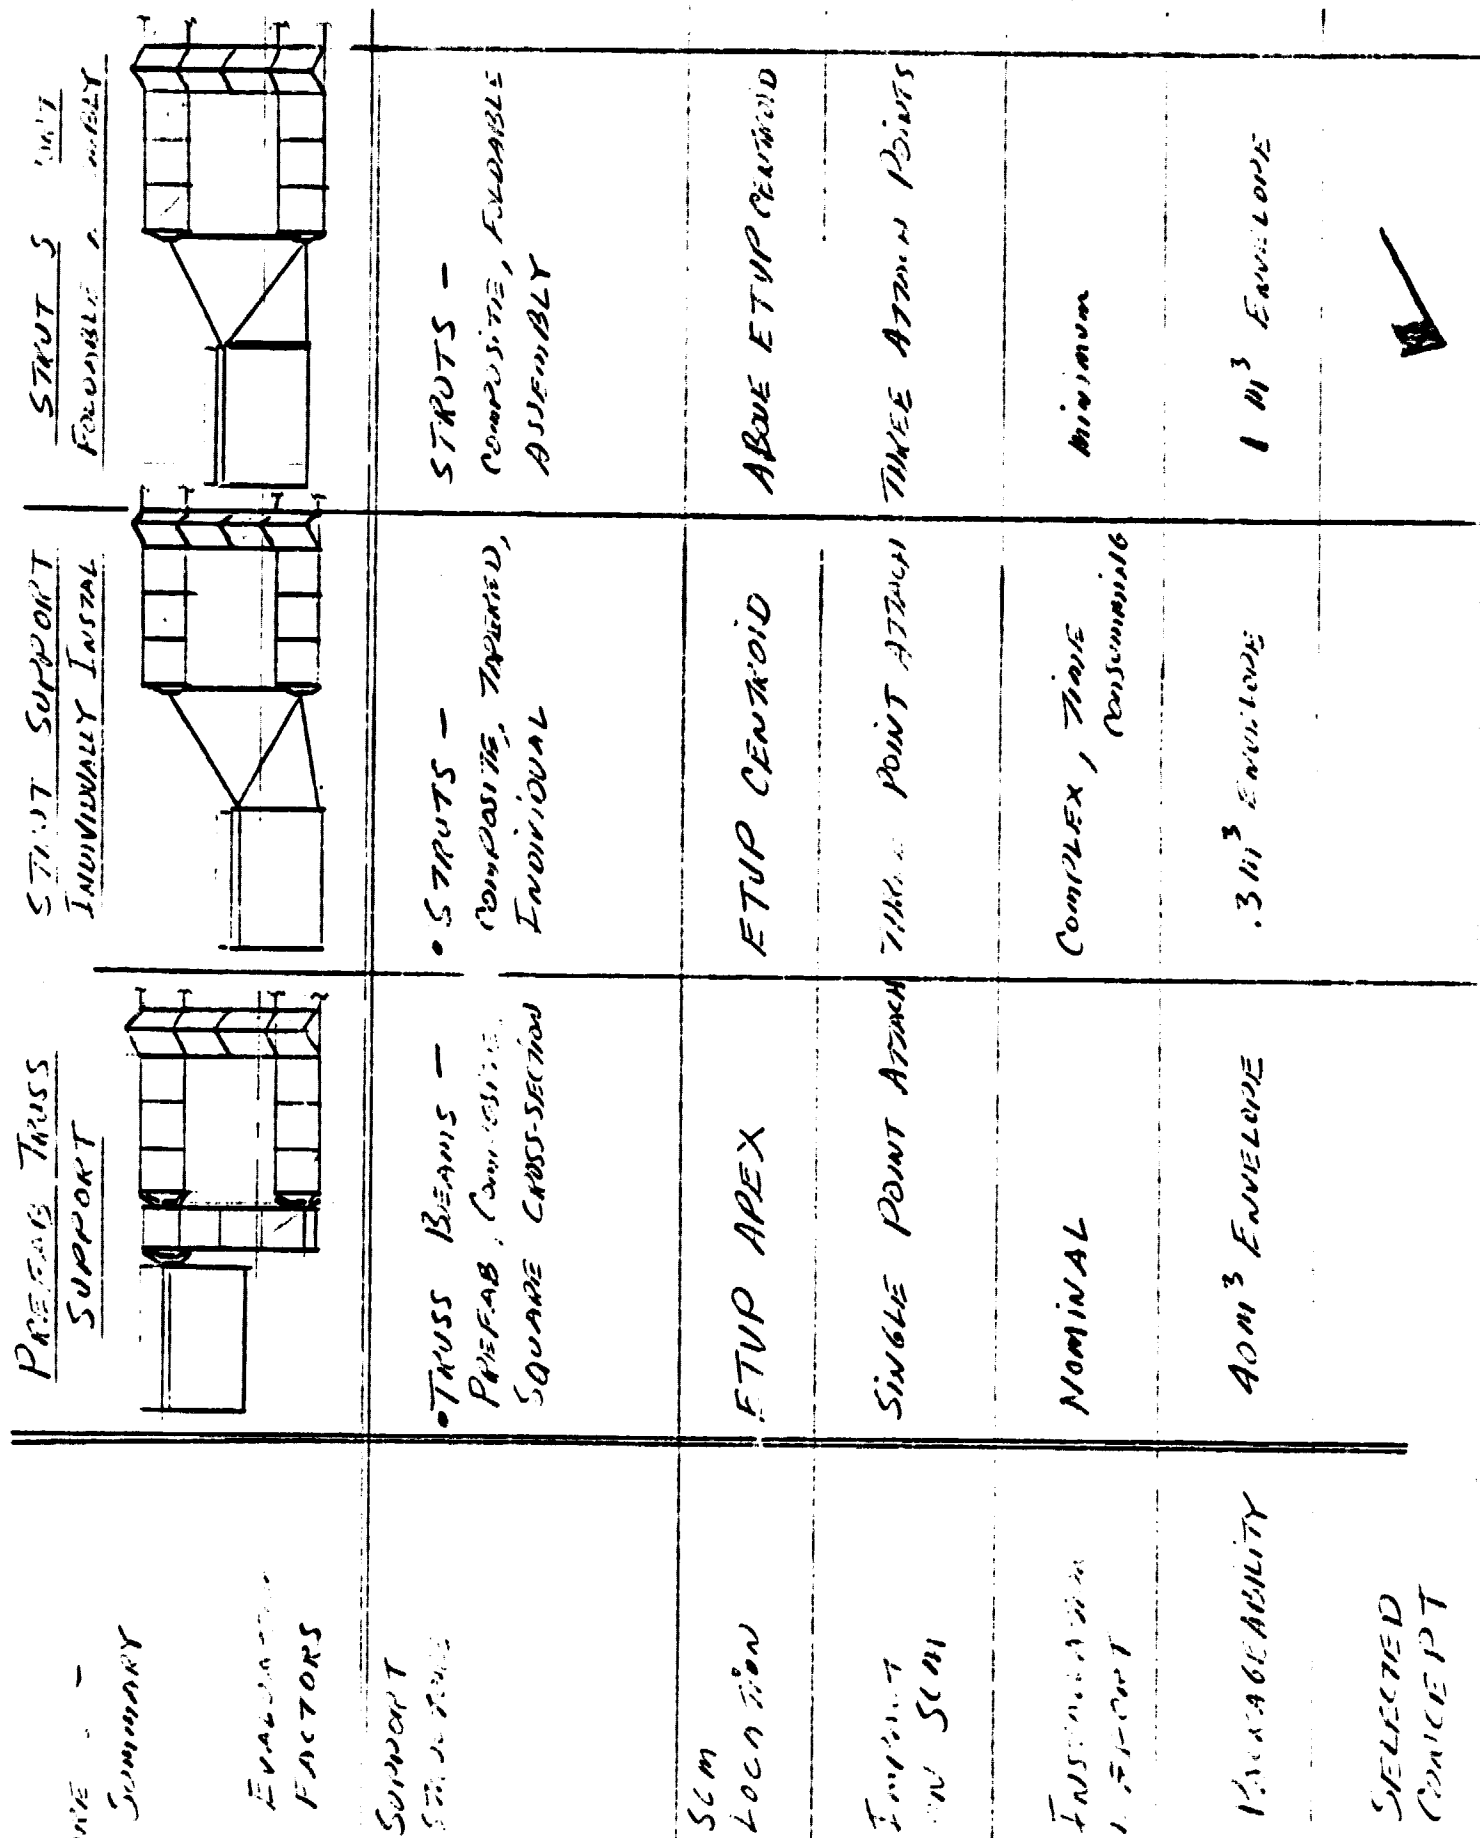 SUMMARY
EVALUATION
FACTORS
PREFAB TRUSS
SUPPORT
STRUT SUPPORT
INDIVIDUALLY INSTAL
STRUT
FOLDABLE
SUPPORT
• TRUSS BEAMS –
PREFAB, COMPOSITE,
SQUARE CROSS-SECTION
• STRUTS –
COMPOSITE, TAPERED,
INDIVIDUAL
STRUTS –
COMPOSITE, FOLDABLE
ASSEMBLY
SCM
LOCATION
ETVP APEX
ETVP CENTROID
ABOVE ETVP CENTROID
IMPACT
ON SCM
SINGLE POINT ATTACH
THREE POINT ATTACH
THREE ATTACH POINTS
NOMINAL
COMPLEX, TIME
CONSUMING
MINIMUM
PACKAGEABILITY
40M³ ENVELOPE
.3M³ ENVELOPE
1 M³ ENVELOPE
SELECTED
CONCEPT